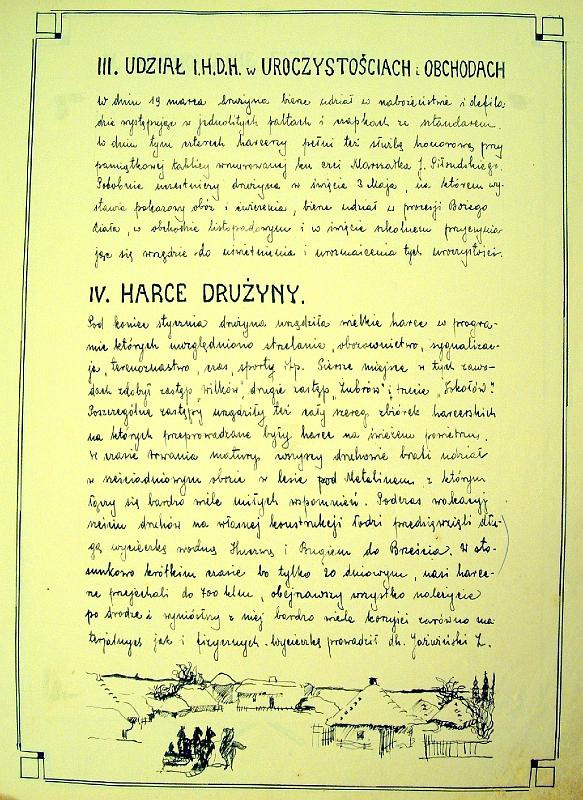 III. UDZIAŁ I.H.D.H. w UROCZYSTOŚCIACH i OBCHODACH
W dniu 19 marca drużyna bierze udział w nabożeństwie i defila-
dzie występując w jednolitych paltach i czapkach ze sztandarem.
W dniu tym czterech harcerzy pełni też służbę honorową przy
pamiątkowej tablicy wmurowanej ku czci Marszałka J. Piłsudskiego.
Podobnie uczestniczy drużyna w święcie 3 Maja, na którem wy-
stawia pokazowy obóz i ćwiczenia, bierze udział w procesji Bożego
Ciała, w obchodzie listopadowym i w święcie szkolnem przyczynia-
jąc się wszędzie do uświetnienia i urozmaicenia tych uroczystości.
IV. HARCE DRUŻYNY.
Pod koniec stycznia drużyna urządziła wielkie harce w progra-
mie których uwzględniono strzelanie, obozownictwo, sygnalizac-
ja, terenoznastwo, oraz sporty itp. Piersze miejsce w tych zawo-
dach zdobył zastęp "Wilków" drugie zastęp "Żubrów" i trzecie "Sokołów".
Poszczególne zastępy urządziły też cały szereg zbiórek harcerskich
na których przeprowadzane były harce na świeżem powietrzu.
W czasie trwania matury, wszyscy druhowie brali udział
w sześciodniowym obozie w lesie pod Metelinem z którym
łączy się bardzo wiele miłych wspomnień. Podczas wakacyj
sześciu druhów na własnej konstrukcji łodzi przedsięwzięli dłu-
gą wycieczkę wodną Huczwą i Bugiem do Brześcia. W sto-
sunkowo krótkim czasie bo tylko 20 dniowym, nasi harce-
rze przejechali do 700 klm, obejrzawszy wszystko należycie
po drodze i wynióśłszy z niej bardzo wiele korzyści zarówno ma-
terjalnych jak i fizycznych. Wycieczkę prowadził dh. Jaźwiński Z.